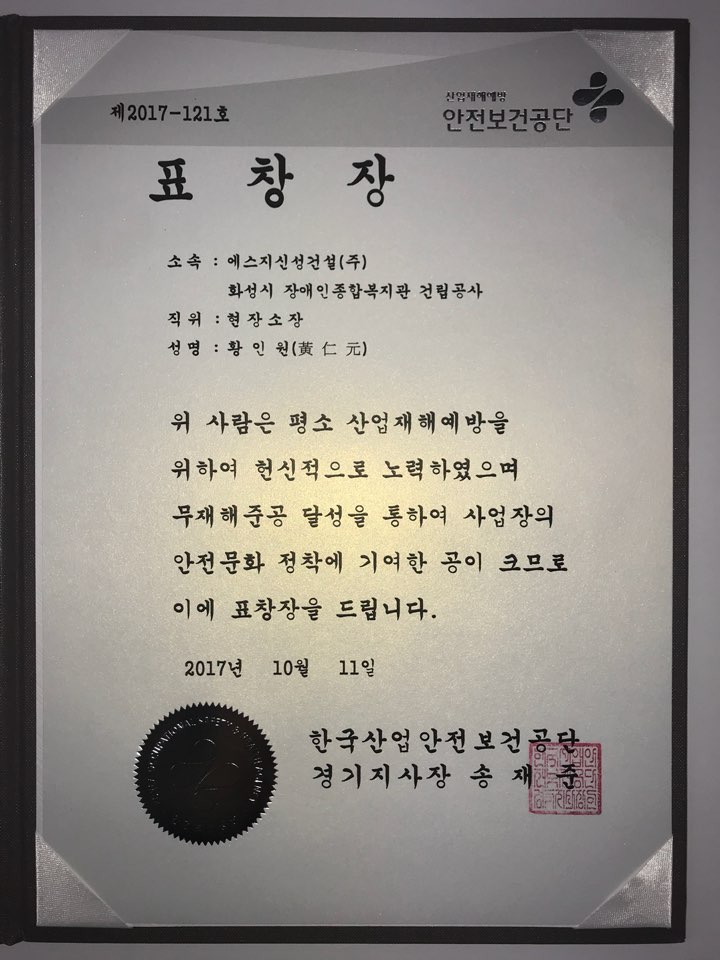 제2017-121호
산업재해예방
안전보건공단
표 창 장
소속 : 에스지신성건설(주)
화성시 장애인종합복지관 건립공사
직위 : 현장소장
성명 : 황 인 원(黃 仁 元)
위 사람은 평소 산업재해예방을
위하여 헌신적으로 노력하였으며
무재해준공 달성을 통하여 사업장의
안전문화 정착에 기여한 공이 크므로
이에 표창장을 드립니다.
2017년 10월 11일
한국산업안전보건공단
경기지사장 송 재 준